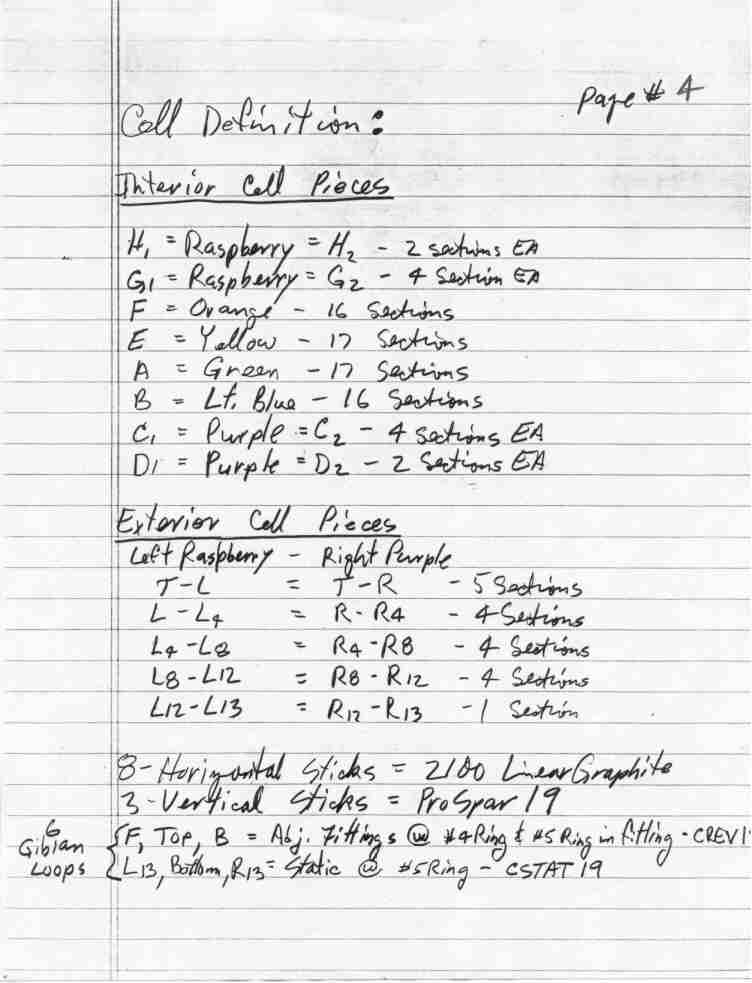 Page # 4
Cell Definition:
Interior Cell Pieces
H1 = Raspberry = H2 - 2 sections EA
G1 = Raspberry = G2 - 4 Section EA
F = Orange - 16 Sections
E = Yellow - 17 Sections
A = Green - 17 Sections
B = Lt. Blue - 16 Sections
C1 = Purple = C2 - 4 Sections EA
D1 = Purple = D2 - 2 Sections EA
Exterior Cell Pieces
Left Raspberry - Right Purple
T-L = T-R - 5 Sections
L-L4 = R-R4 - 4 Sections
L4-L8 = R4-R8 - 4 Sections
L8-L12 = R8-R12 - 4 Sections
L12-L13 = R12-R13 - 1 Section
8-Horizontal Sticks = 2100 Linear Graphite
3-Vertical Sticks = ProSpar 19
6 Gibian Loops
F, Top, B = Adj. Fittings @ #4 Ring & #5 Ring in fitting - CREV1
L13, Bottom, R13 = Static @ #5 Ring - CSTAT 19